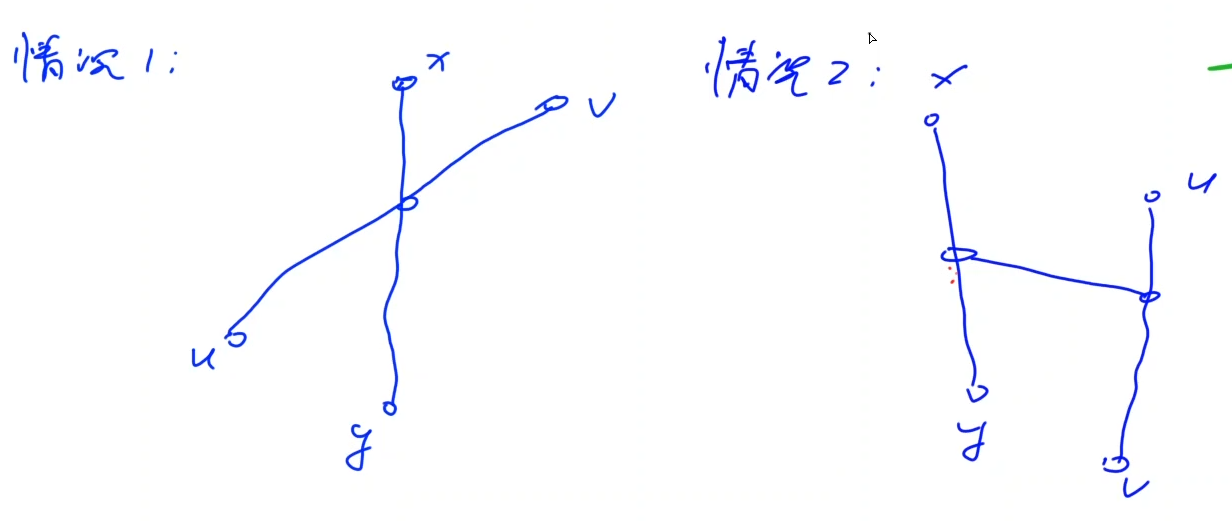 情况1:
x
v
u
y
情况2:
x
u
y
v